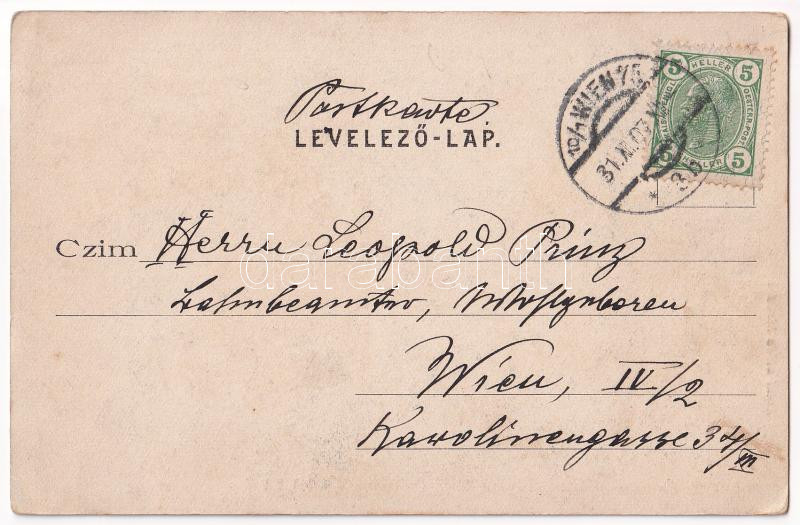 Postkarte
LEVELEZŐ-LAP.
10/1 WIEN 75
31.XII.07
5 HELLER 5
5 HELLER 5
Czim Herrn Leopold Prinz
Bahnbeamter, Wohlgeboren
Wien, IV/2
Karolinengasse 34/III
darabanth